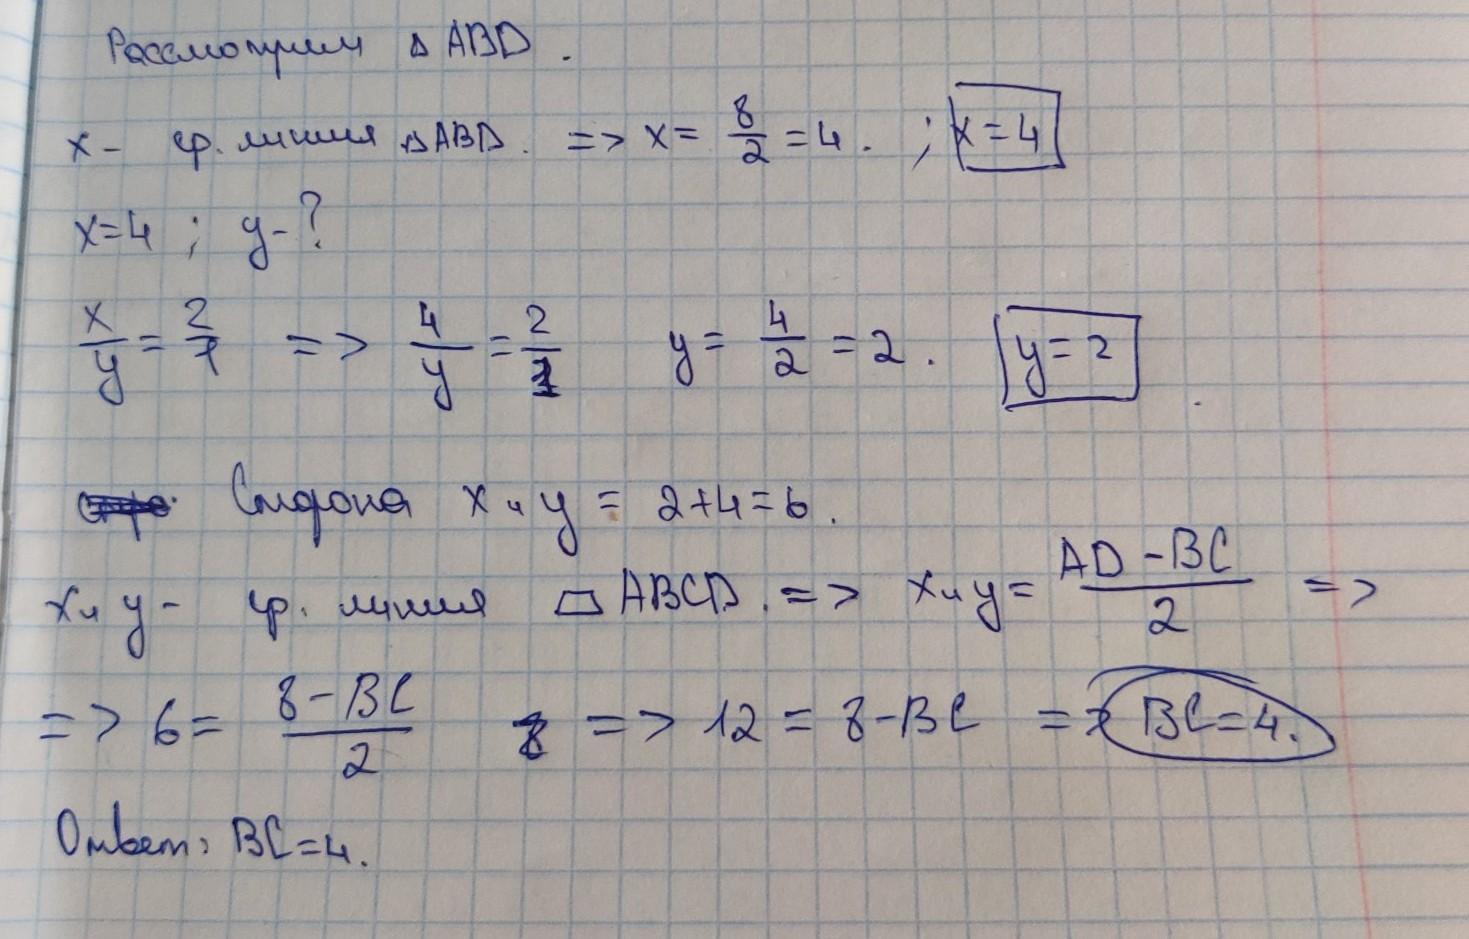 Рассмотрим △ ABD.
x - ср. линия △ABD. => x = 8/2 = 4. ; x = 4
x=4 ; y-?
x/y = 2/1 => 4/y = 2/1 y = 4/2 = 2. y = 2
Сторона x и y = 2+4=6.
x и y - ср. линия ▱ ABCD. => x и y = (AD - BC)/2 =>
=> 6 = (8 - BC)/2 => 12 = 8 - BC => BC = 4.
Ответ: BC = 4.